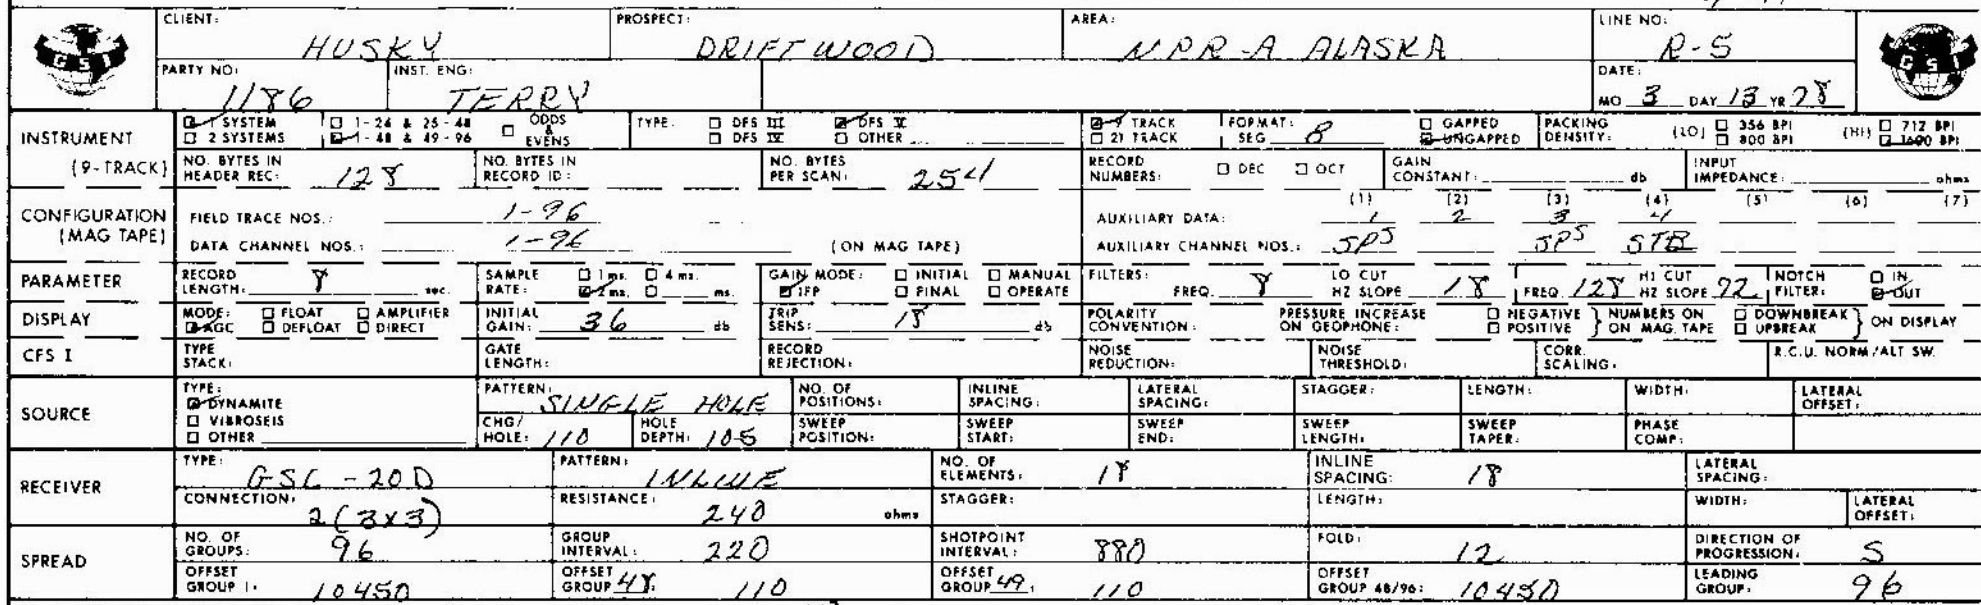 CLIENT: HUSKY PROSPECT: DRIFTWOOD AREA: N.P.R-A ALASKA LINE NO: R-5
GSI
GSI
PARTY NO: 1186 INST. ENG: TERRY DATE: MO 3 DAY 13 YR 78
INSTRUMENT (9-TRACK)
1 SYSTEM 1-24 & 25-48 ODDS & EVENS TYPE: DFS III DFS V 9 TRACK FORMAT: SEG B GAPPED PACKING DENSITY: (LO) 356 BPI (HI) 712 BPI
2 SYSTEMS 1-48 & 49-96 DFS IV OTHER 21 TRACK UNGAPPED 800 BPI 1600 BPI
NO. BYTES IN HEADER REC: 128 NO. BYTES IN RECORD ID: NO. BYTES PER SCAN: 254 RECORD NUMBERS: DEC OCT GAIN CONSTANT: db INPUT IMPEDANCE: ohms
CONFIGURATION (MAG TAPE)
FIELD TRACE NOS.: 1-96 AUXILIARY DATA: (1) 1 (2) 2 (3) 3 (4) 4 (5) (6) (7)
DATA CHANNEL NOS.: 1-96 (ON MAG TAPE) AUXILIARY CHANNEL NOS.: JPS JPS STB
PARAMETER RECORD LENGTH: 8 sec. SAMPLE RATE: 1 ms. 4 ms. 2 ms. ms. GAIN MODE: INITIAL MANUAL IFP FINAL OPERATE FILTERS: FREQ. 8 LO CUT HZ SLOPE 18 FREQ. 128 HI CUT HZ SLOPE 72 NOTCH FILTER: IN OUT
DISPLAY MODE: FLOAT AMPLIFIER AGC DEFLOAT DIRECT INITIAL GAIN: 36 db TRIP SENS: 18 db POLARITY CONVENTION: PRESSURE INCREASE ON GEOPHONE: NEGATIVE POSITIVE } NUMBERS ON MAG. TAPE DOWNBREAK UPBREAK } ON DISPLAY
CFS I TYPE STACK: GATE LENGTH: RECORD REJECTION: NOISE REDUCTION: NOISE THRESHOLD: CORR. SCALING: R.C.U. NORM/ALT SW.
SOURCE
TYPE: DYNAMITE PATTERN: SINGLE HOLE NO. OF POSITIONS: INLINE SPACING: LATERAL SPACING: STAGGER: LENGTH: WIDTH: LATERAL OFFSET:
VIBROSEIS OTHER CHG/HOLE: 110 HOLE DEPTH: 105 SWEEP POSITION: SWEEP START: SWEEP END: SWEEP LENGTH: SWEEP TAPER: PHASE COMP:
RECEIVER
TYPE: GSC-20D PATTERN: INLINE NO. OF ELEMENTS: 18 INLINE SPACING: 18 LATERAL SPACING:
CONNECTION: 2(3x3) RESISTANCE: 240 ohms STAGGER: LENGTH: WIDTH: LATERAL OFFSET:
SPREAD
NO. OF GROUPS: 96 GROUP INTERVAL: 220 SHOTPOINT INTERVAL: 880 FOLD: 12 DIRECTION OF PROGRESSION: S
OFFSET GROUP 1: 10450 OFFSET GROUP 48: 110 OFFSET GROUP 49: 110 OFFSET GROUP 48/96: 10450 LEADING GROUP: 96